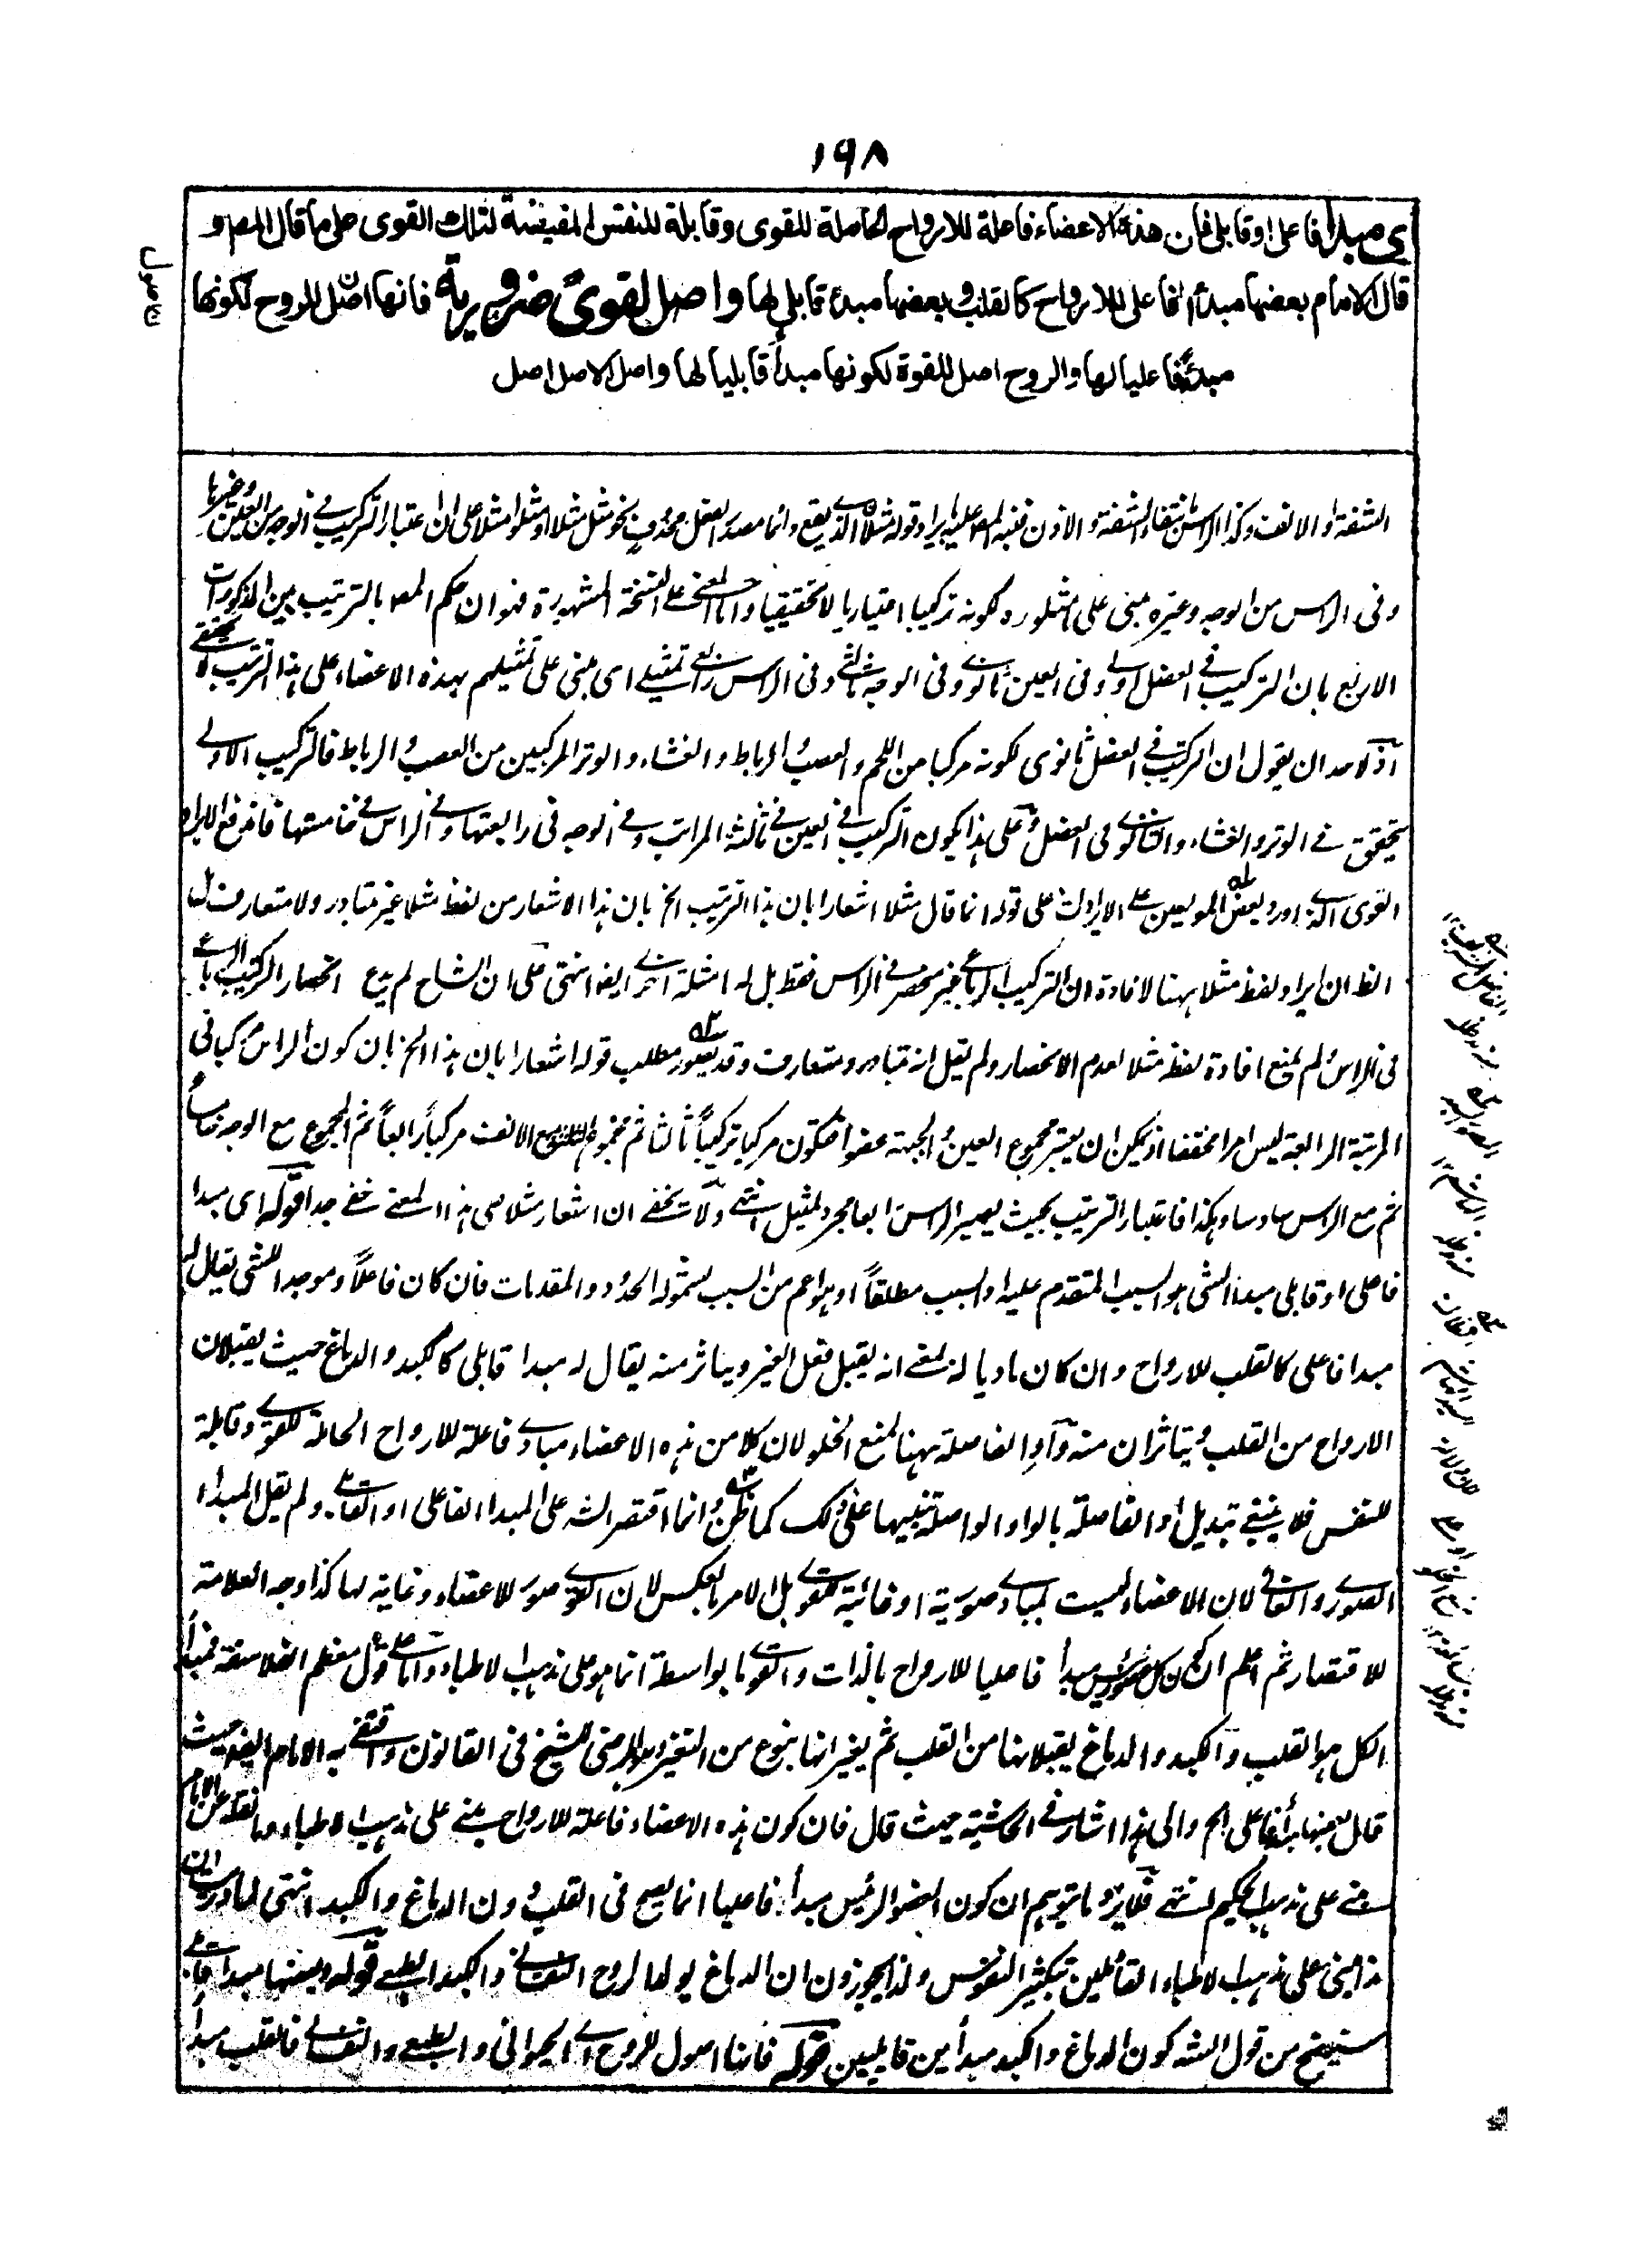 ١٩٨
ى مبدأ فاعلى او قابلى فان هذه الاعضاء فاعلة للارواح الحاملة للقوى وقابلة للنفس المفيضة لتلك القوى على ما قال المصر و
قال الامام بعضها مبدأ الفاعلى للارواح كالقلب و بعضها مبدء قابلى لها واصل لقوىً ضرورية فانها اصل للروح لكونها
مبدءً فاعليا لها والروح اصل للقوة لكونها مبدأ قابليا لها واصل الاصل اصل
الشفة او الانف وكذا الراس بانتفاء الشفة و الاذن فنبه المصر عليه بايراد قوله مثلا الذى يقع دائما مصدر الفعل محذوف نحو مثل مثلا او مثلوا مثلا على ان اعتبار التركيب فى الوجه من العينين وغيرها
وفى الراس من الوجه وغيره مبنى على ما مثلوه لكونه تركيبا اعتباريا لا تحقيقيا واما المعنى على النسخة المشهورة فهو ان حكم المصر بالترتيب بين المذكورات
الاربع بان التركيب فى العضل اولى وفى العين ثانوى وفى الوجه ثالثى وفى الراس رابعى تمثيلى اى مبنى على تمثيلهم بهذه الاعضاء على هذا الترتيب لا تحقيقى
اذ لاحد ان يقول ان التركيب فى العضل ثانوى لكونه مركبا من اللحم والعصب والرباط والغشاء والوتر المركبين من العصب والرباط فالتركيب الاولى
يتحقق فى الوتر والغشاء والثانوى فى العضل وعلى هذا يكون التركيب فى العين فى ثالثة المراتب وفى الوجه فى رابعتها وفى الراس فى خامستها فاندفع الايراد
القوى الذى اورد بعض المولعين على الايراد على قوله انما قال مثلا اشعارا بان هذا الترتيب الخ بان هذا الاشعار من لفظ مثلا غير متبادر ولا متعارف بل
الظ ان ايراد لفظ مثلا ههنا لافادة ان التركيب الرابعى غير منحصر فى الراس فقط بل له امثلة اخرى ايضا انتهى على ان الشارح لم يدع انحصار التركيب الرابعى
فى الراس ولم يمنع افادة لفظ مثلا لعدم الانحصار ولم يقل انه متبادر ومتعارف وقد يصور مطلب قوله اشعارا بان هذا الخ بان كون الراس مركبا فى
المرتبة الرابعة ليس امرا محققا اذ يمكن ان يعتبر مجموع العين والجبهة عضوا فتكون مركبا تركيباً ثالثا ثم مجموع مع الانف مركباً رابعاً ثم المجموع مع الوجه خامساً
ثم مع الراس سادسا وهكذا فاعتبار الترتيب بحيث يصير الراس رابعا مجرد تمثيل انتهى ولا يخفى ان اشعار مثلا على هذا المعنى خفى جدا قوله اى مبدا
فاعلى او قابلى مبدأ الشئ هو السبب المتقدم عليه او السبب مطلقاً او هو اعم من السبب لشموله الحدود والمقدمات فان كان فاعلاً وموجدا للشئ يقال له
مبدا فاعلى كالقلب للارواح وان كان ماديا له بمعنى انه يقبل فعل الغير ويتاثر منه يقال له مبدا قابلى كالكبد والدماغ حيث يقبلان
الارواح من القلب ويتاثران منه واو الفاصلة ههنا لمنع الخلو لان كلا من هذه الاعضاء مبادى فاعلة للارواح الحاملة للقوى وقابلة
للنفس فلا ينبغى تبديل او الفاصلة بالواو الواصلة تنبيها على ذلك كما ظن وانما اقتصر الشه على المبدا الفاعلى او القابلى ولم يقل المبداء
الصورى والغائى لان الاعضاء ليست بمبادى صورية او غائية للقوى بل الامر بالعكس لان القوى صور للاعضاء وغاية لها كذا وجه العلامة
للاقتصار ثم اعلم ان كون كل عضو رئيس مبدأ فاعليا للارواح بالذات والقوى بالواسطة انما هو على مذهب الاطباء واما على قول معظم الفلاسفة فمبدأ
الكل هو القلب والكبد والدماغ يقبلانها من القلب ثم يغيرانها بنوع من التغير وهو المرضى للشيخ فى القانون واقتفى به الامام ايضا حيث
قال بعضها مبدأ فاعلى الخ والى هذا اشار فى الحاشية حيث قال فان كون هذه الاعضاء فاعلة للارواح مبنى على مذهب الاطباء وما نقله عن الامام
مبنى على مذهب الحكيم انتهى فلا يرد ما يتوهم ان كون العضو الرئيس مبدأ فاعليا انما يصح فى القلب دون الدماغ والكبد انتهى لما دريت ان
هذا مبنى على مذهب الاطباء القائلين بتكثير النفوس ولذا يجوزون ان الدماغ يولد الروح النفسانى والكبد الطبعى قوله وبعضها مبدا قابلى
سيتضح من قول الشه كون الدماغ والكبد مبدأين قابليين قوله فانها اصول للروح اى الحيوانى والطبعى والنفسانى فالقلب مبدأ